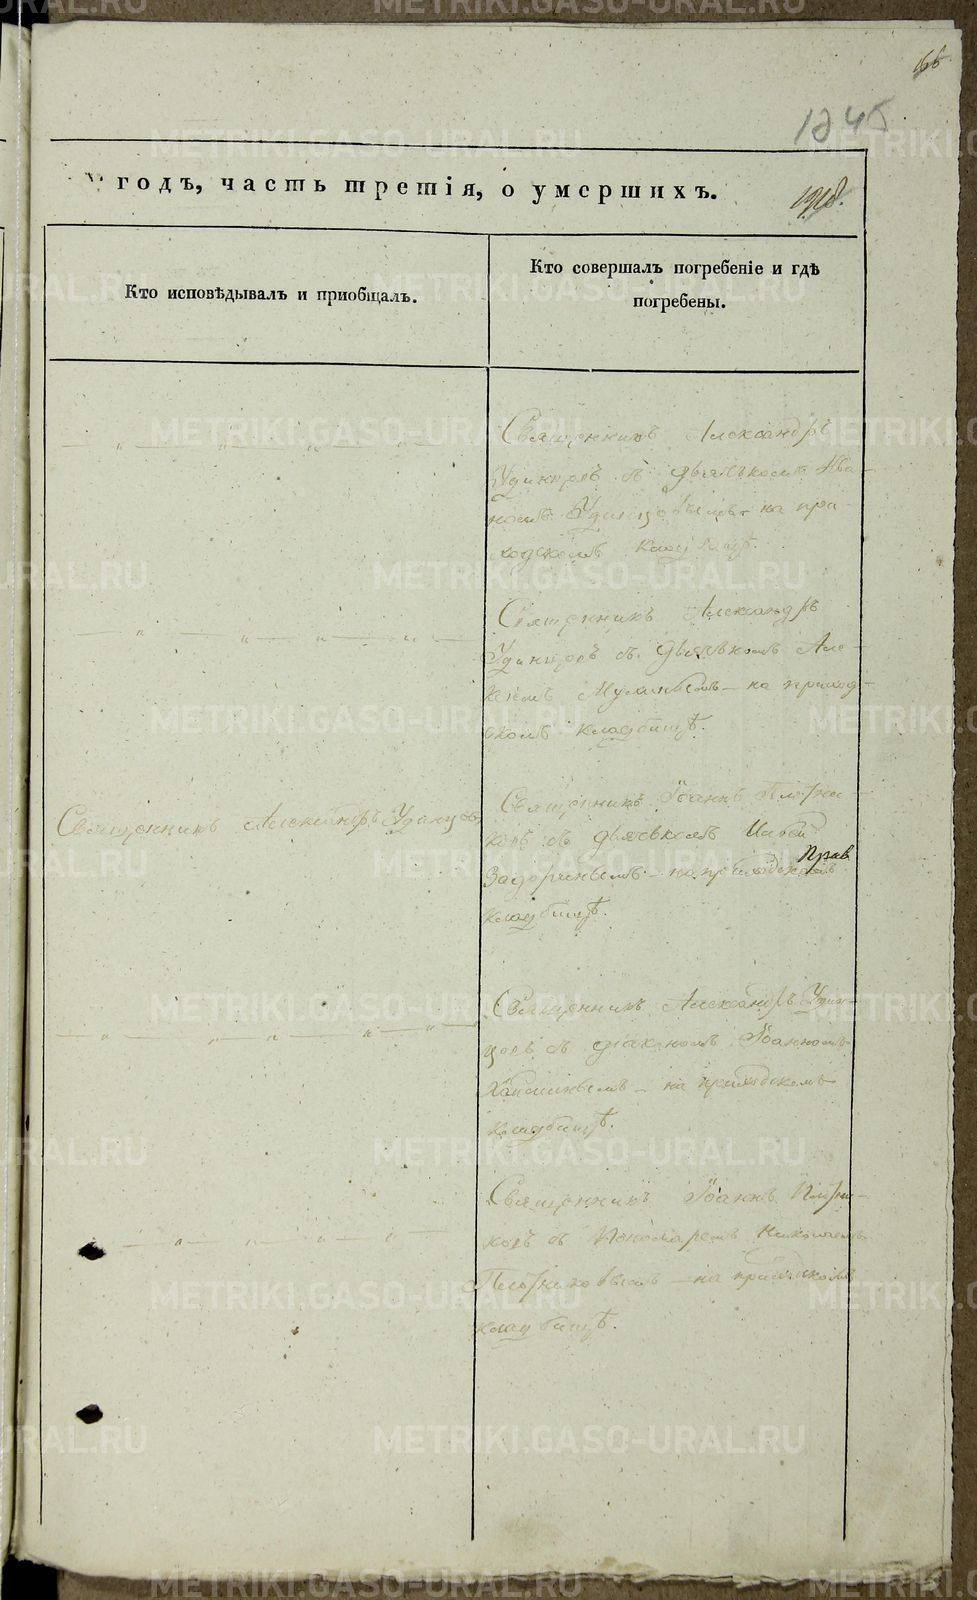 1245
годъ, часть третія, о умершихъ.
Кто исповѣдывалъ и пріобщалъ.
Кто совершалъ погребеніе и гдѣ
погребены.
Священникъ Александръ
Удинцовъ съ дьячькомъ Ива-
номъ Удинцовымъ на при-
ходскомъ кладбищѣ.
Священникъ Александръ
Удинцовъ съ дьячькомъ Але-
Мулинымъ – на приход-
скомъ кладбищѣ.
Священникъ Александръ Удинцовъ
Священникъ Іоаннъ Плотни-
ковъ съ дьячькомъ
Задоринымъ – на приходскомъ
кладбищѣ.
Священникъ Александръ Удин-
цовъ съ діакономъ Іоанномъ
– на приходскомъ
кладбищѣ.
Священникъ Іоаннъ Плотни-
ковъ съ Пономаремъ Николаемъ
Плотниковымъ – на приходскомъ
кладбищѣ.
METRIKI.GASO-URAL.RU